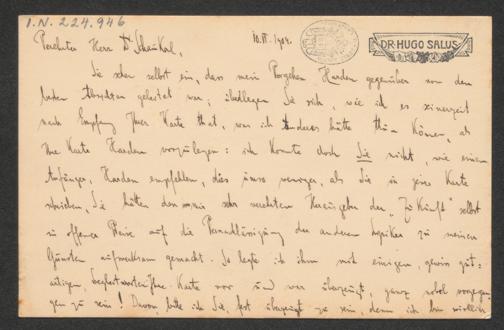 I.N. 224.946
DR. HUGO SALUS
10.VI.1904.
Verehrter Herr Dr. Schaukal,
Sie sehen selbst ein, dass mein Vorgehen Harden gegenüber von den
besten Absichten geleitet war; überlegen Sie sich, wie ich es seinerzeit
nach Empfang Ihrer Karte that, was ich Anderes hätte thun können, als
Ihre Karte Harden vorzulegen: ich konnte doch Sie nicht, wie einen
Anfänger, Harden empfehlen, dies umso weniger, als Sie in jener Karte
schrieben, Sie hätten den mir sehr verehrten Herausgeber der "Zukunft" selbst
in offener Weise auf die Vernachlässigung der anderen Lyriker zu meinen
Gunsten aufmerksam gemacht. So legte ich ihm mit einigen, gewiss gut-
artigen, Begleitworten Ihre Karte vor und war überzeugt, ganz nobel vorgegan-
gen zu sein! Davon, bitte ich Sie, fest überzeugt zu sein, denn ich bin wirklich